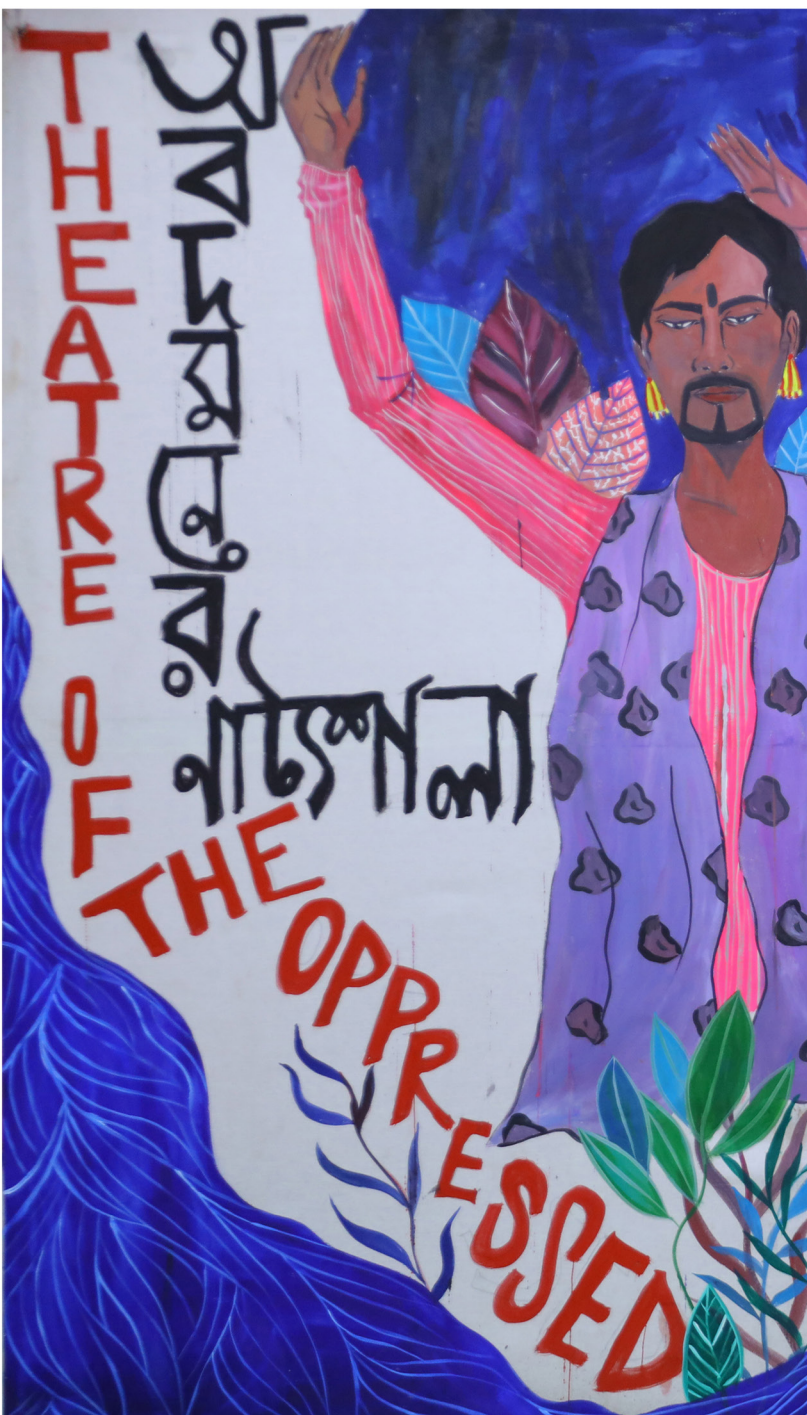 THEATRE OF
THE OPPRESSED
অবদমনের
নাট্যশালা